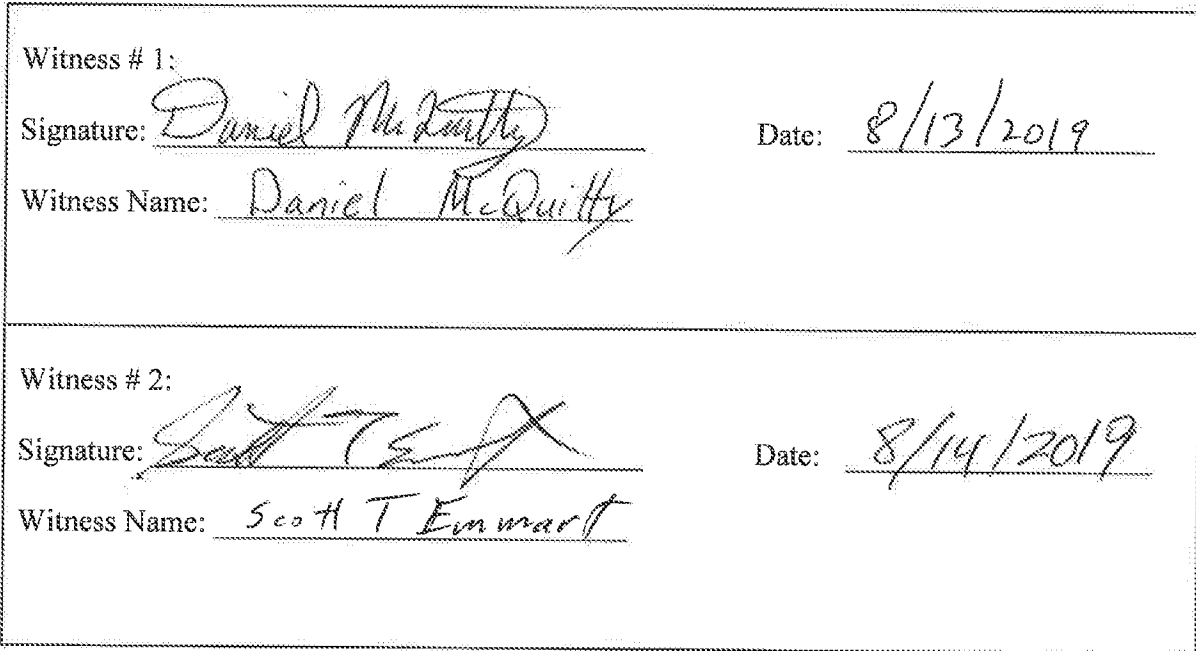 Witness # 1:
Signature: Daniel McQuitty Date: 8/13/2019
Witness Name: Daniel McQuitty
Witness # 2:
Signature: Scott T Emmart Date: 8/14/2019
Witness Name: Scott T Emmart